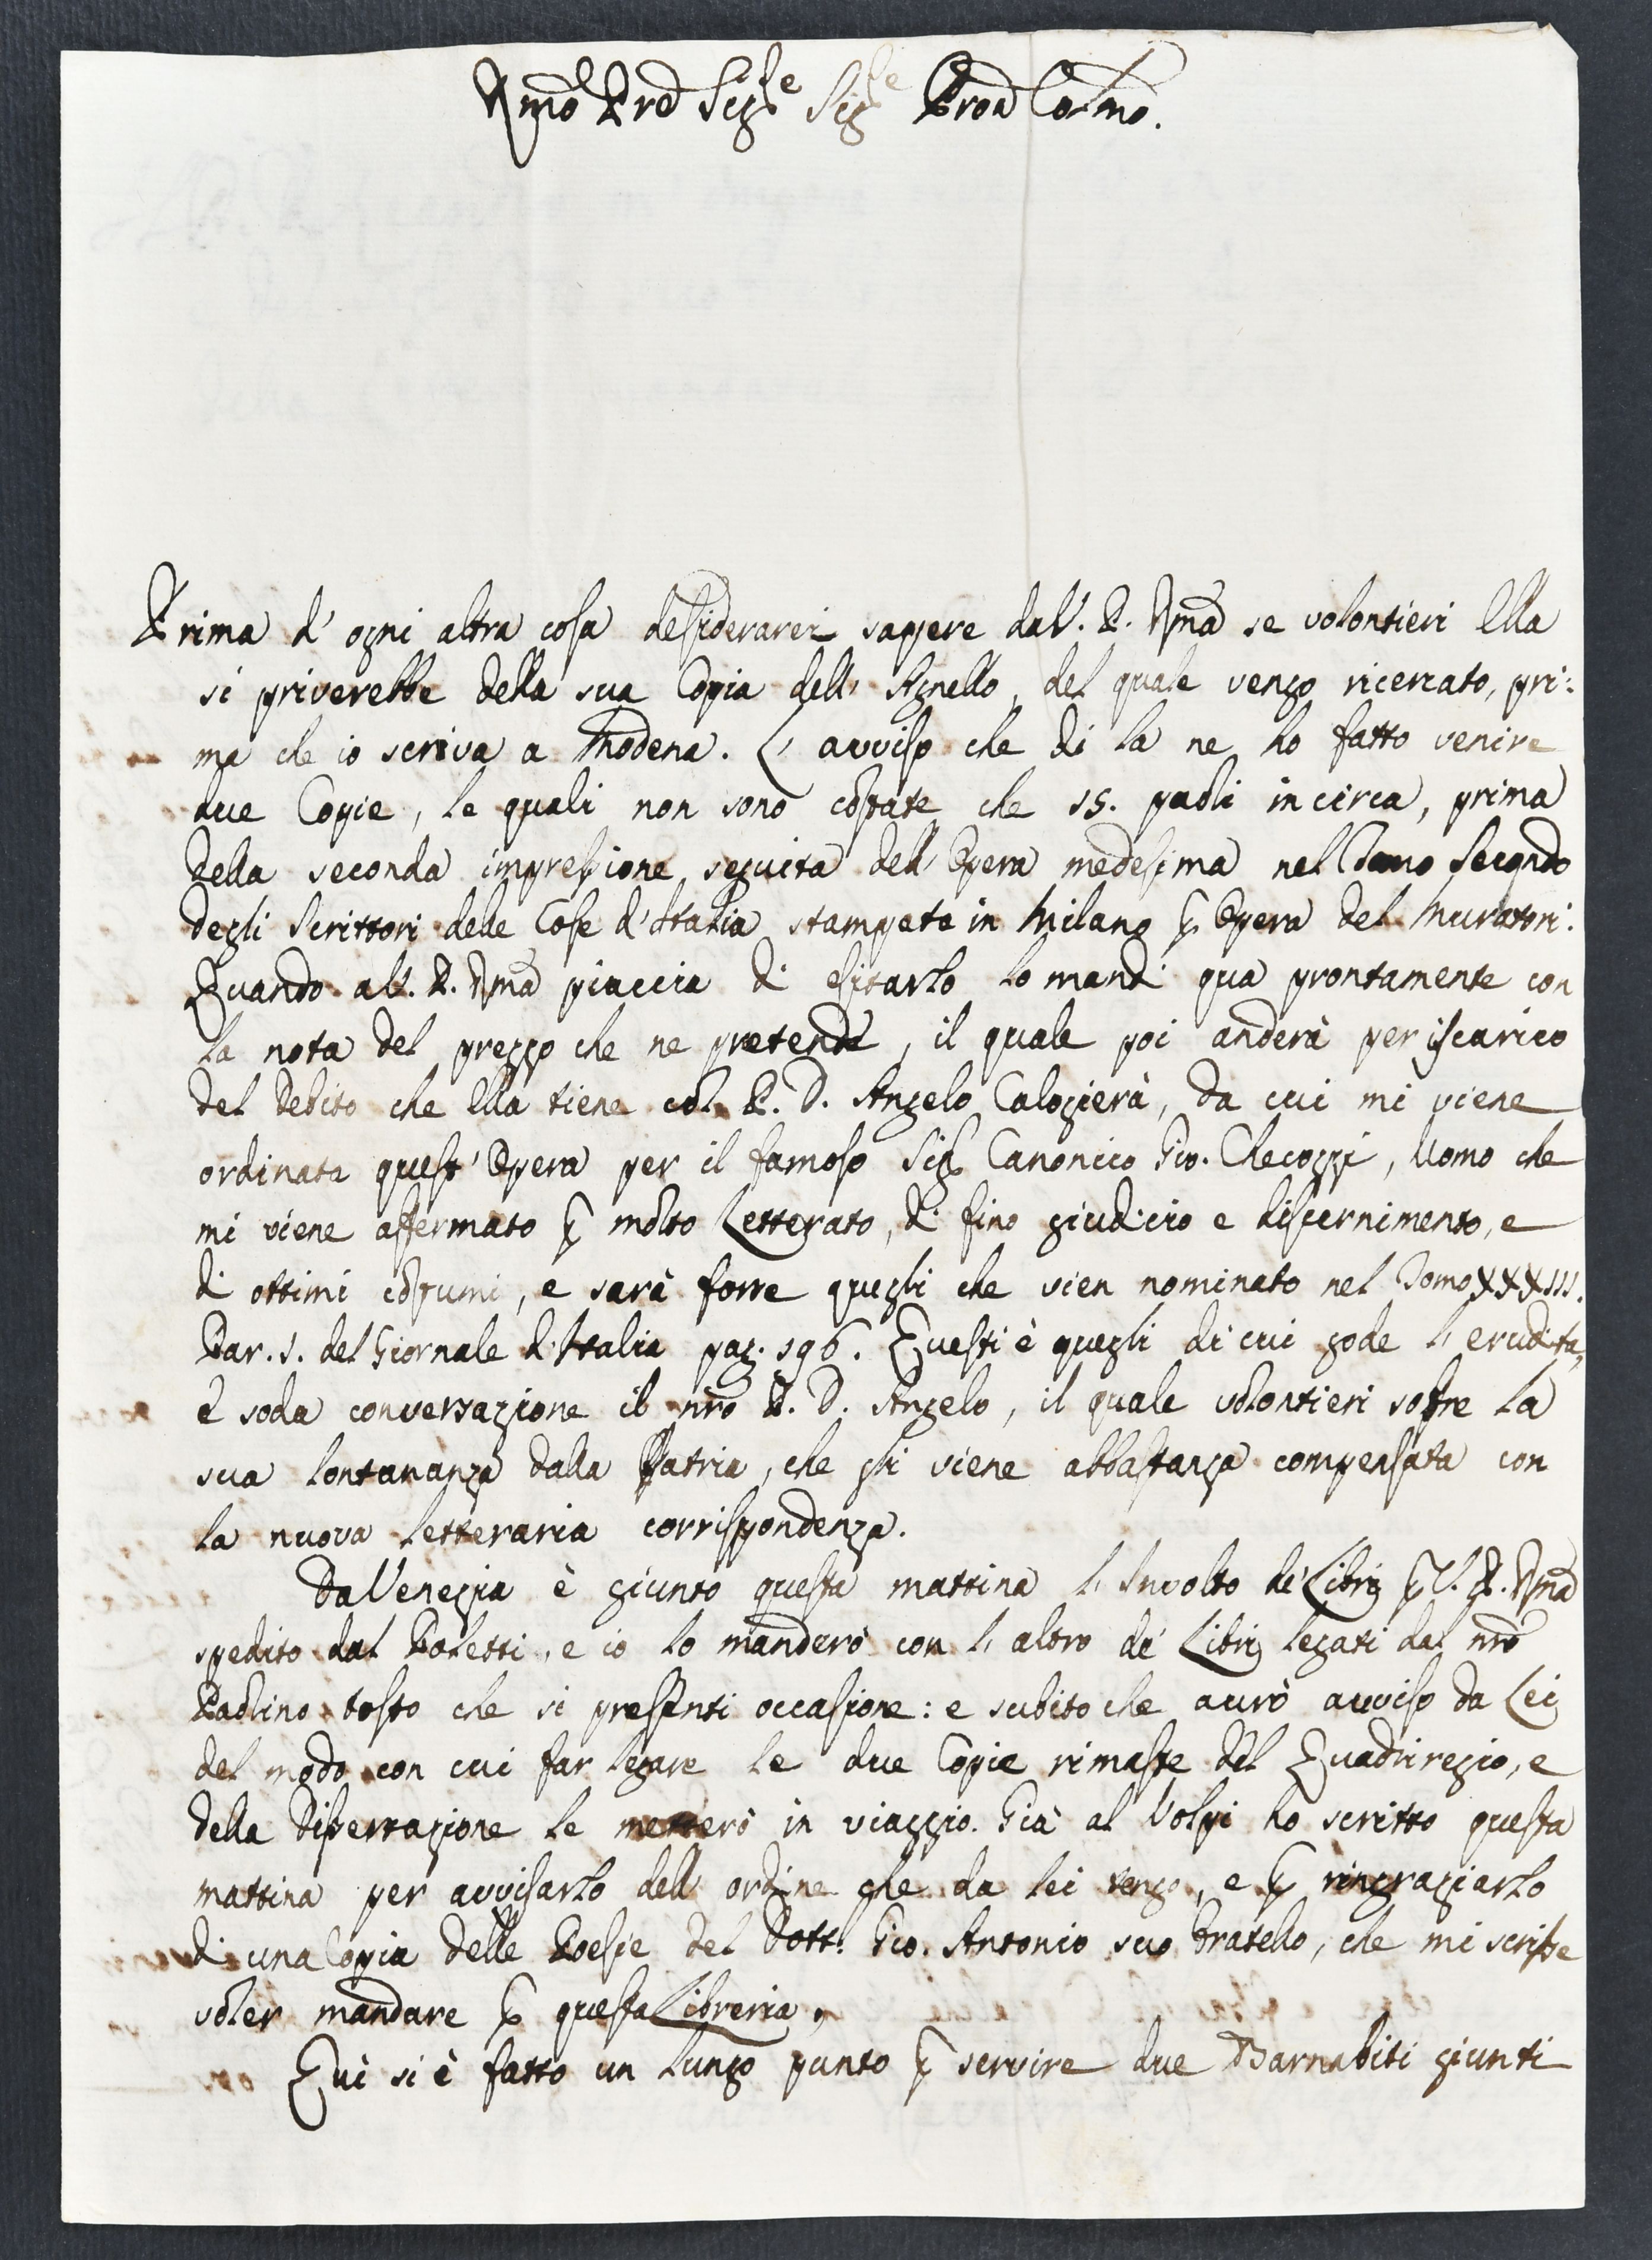 Rmo Pre Sigre Sigre Pron Colmo.
Prima d' ogni altra cosa desiderarei sapere da V. P. Rma se volontieri Ella
si priverebbe della sua Copia dell' Agnello, del quale vengo ricercato, pri:
ma che io scriva a Modena. L' avviso che di la ne ho fatto venire
due Copie, le quali non sono costate che 15. paoli in circa, prima
della seconda impressione seguita dell' Opera medesima nel Tomo Secondo
degli Scrittori delle Cose d' Italia stampata in Milano p Opera del Muratori.
Quando a V. P. Rma piaccia di esitarlo lo mandi qua prontamente con
la nota del prezzo che ne pretende, il quale poi anderà per iscarico
del debito che Ella tiene col P. D. Angelo Calogierà, da cui mi viene
ordinata quest' Opera per il famoso Sig Canonico Gio. Checozzi, Uomo che
mi viene affermato p molto Letterato, di fino giudicio e discernimento, e
di ottimi costumi, e sarà forse quegli che vien nominato nel Tomo XXXIII.
Par. I. del Giornale d' Italia pag. 196. Questi è quegli di cui gode l' erudita,
e soda conversazione il nro P. D. Angelo, il quale volontieri soffre la
sua lontananza dalla Patria, che gli viene abbastanza compensata con
la nuova letteraria corrispondenza.
Da Venezia è giunto questa mattina l' Involto de' Libri p V. P. Rma
spedito dal Poletti, e io lo manderò con l' altro de' Libri legati dal nro
Paolino tosto che si presenti occasione: e subito che avrò avviso da Lei
del modo con cui far legare le due Copie rimaste del Quadriregio, e
della Dissertazione le metterò in viaggio. Già al Volpi ho scritto questa
mattina per avvisarlo dell' ordine che da lei tengo, e p ringraziarlo
di una Copia delle Poesie del Dott. Gio. Antonio suo Fratello, che mi scrisse
voler mandare p questa Libreria.
Qui si è fatto un lungo punto p servire due Barnabiti giunti